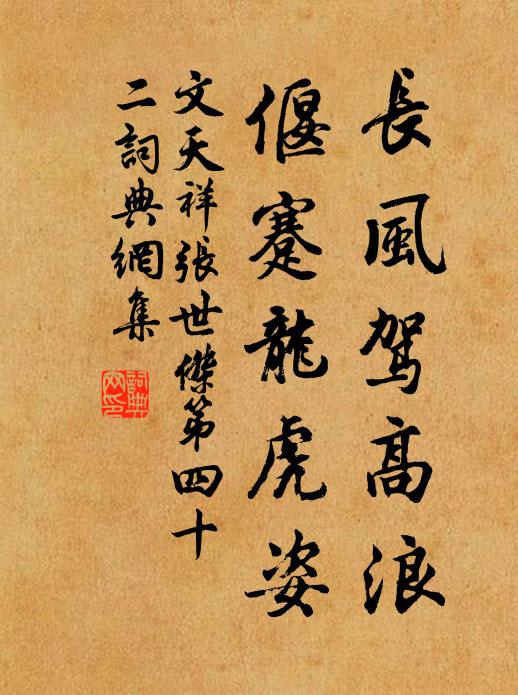 長風駕高浪
偃蹇龍虎姿
文天祥張世傑第四十
二詞典網集
詞典網印